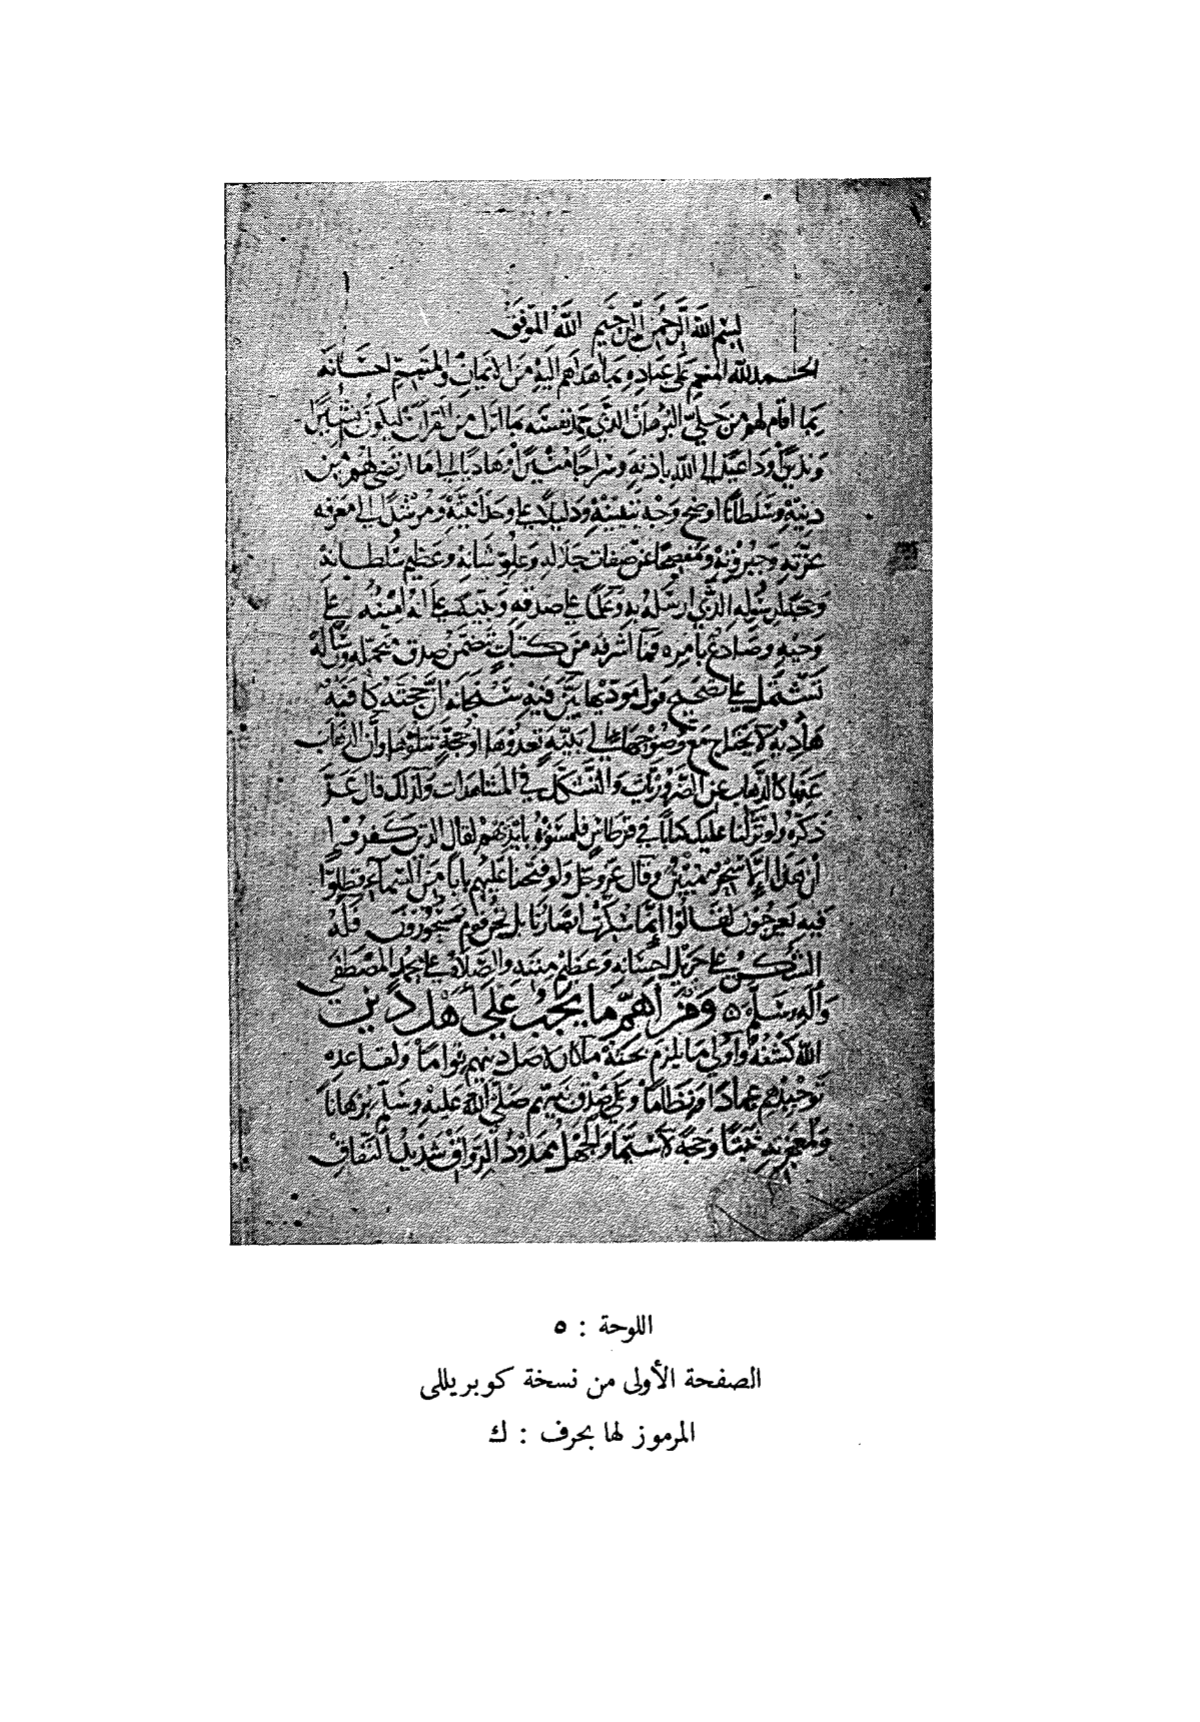 بسم الله الرحمن الرحيم الله الموفق
الحمد لله المنعم على عباده بما هداهم اليه من الايمان والمتمم احسانه
بما اقام لهم من جلي البرهان الذي حمد نفسه بما انزل من القرآن ليكون بشيرا
ونذيرا وداعيا الى الله باذنه وسراجا منيرا وهاديا الى ما ارتضى لهم من
دينه وسلطانا اوضح وجه تبيينه ودليلا على وحدانيته ومرشدا الى معرفة
عزته وجبروته ومفصحا عن صفات جلاله وعلو شانه وعظيم سلطانه
وحجة لرسوله الذي ارسله به وعلما على صدقه وبينة على انه امينه على
وحيه وصادع بامره فما اشرفه من كتاب يتضمن صدق متحمله ورسالة
تشتمل على تصحيح قول مؤديها بين فيه سبحانه ان حجته كافية
هادية لا يحتاج مع وضوحها الى بينة تعدوها او حجة تتلوها وان الذهاب
عنها كالذهاب عن الضروريات والتشكك في المشاهدات ولذلك قال عز
ذكره ولو نزلنا عليك كتابا في قرطاس فلمسوه بايديهم لقال الذين كفروا
ان هذا الا سحر مبين وقال عز وجل ولو فتحنا عليهم بابا من السماء فظلوا
فيه يعرجون لقالوا انما سكرت ابصارنا بل نحن قوم مسحورون فله
الشكر على جزيل احسانه وعظيم مننه والصلاة على محمد المصطفى
وآله وسلم ومن اهم ما يجب على اهل دين
الله كشفه واولى ما يلزم بحثه ما كان لاصل دينهم قواما ولقاعدة
توحيدهم عمادا ونظاما وعلى صدق نبيهم صلى الله عليه وسلم برهانا
ولمعجزته ثبتا وحجة لا سيما والجهل ممدود الرواق شديد النفاق
اللوحة : ٥
الصفحة الأولى من نسخة كوبريللى
المرموز لها بحرف : ك